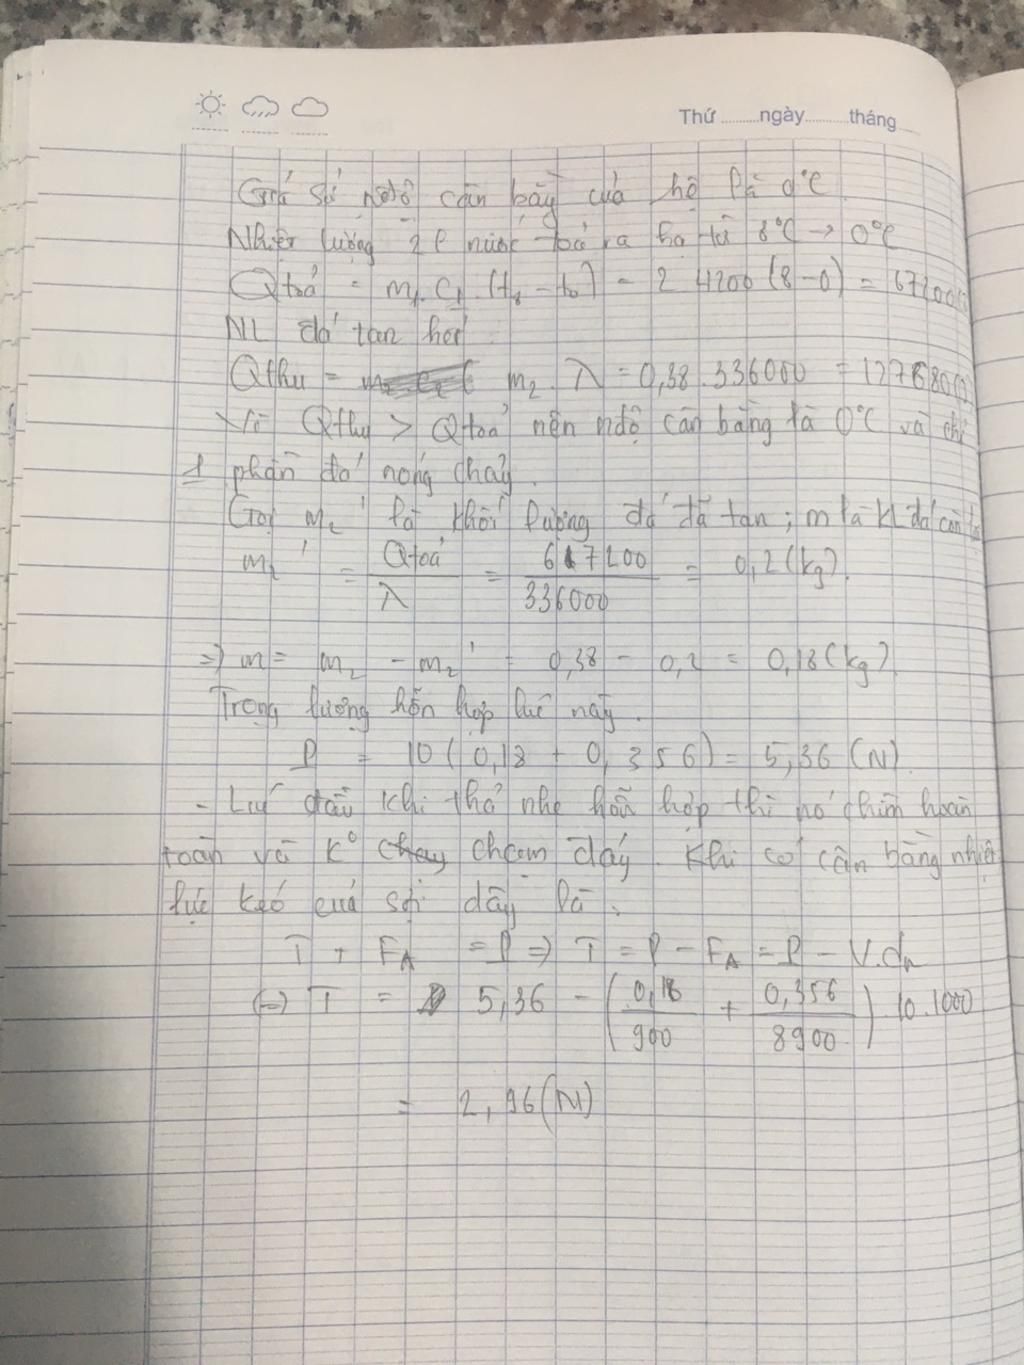 Thứ ........ngày..........tháng
Giả sử nđộ cân bằng của hệ là 0°C
Nhiệt lượng 2l nước toả ra hạ từ 8°C → 0°C
Qtoả = m₁.C₁.(t₈ - t₀) = 2 4200 (8-0) = 67200
NL đá tan hết
Qthu = m₂.λ = 0,38.336000 = 127680
Vì Qthu > Qtoả nên nđộ cân bằng là 0°C và chỉ
1 phần đá nóng chảy.
Gọi m₂' là khối lượng đá đã tan; m là KL đá còn
m₂' = Qtoả / λ = 67200 / 336000 = 0,2 (kg).
=> m = m₂ - m₂' = 0,38 - 0,2 = 0,18 (kg)
Trọng lượng hỗn hợp lúc này.
P = 10 (0,18 + 0,356) = 5,36 (N).
- Lúc đầu khi thả nhẹ hỗn hợp thì nó chìm hoàn
toàn và k° chạm đáy. Khi có cân bằng nhiệt
lực kéo của sợi dây là.
T + FA = P => T = P - FA = P - V.dn
(=) T = 5,36 - (0,18/900 + 0,356/8900).10.1000
= 2,96 (N)